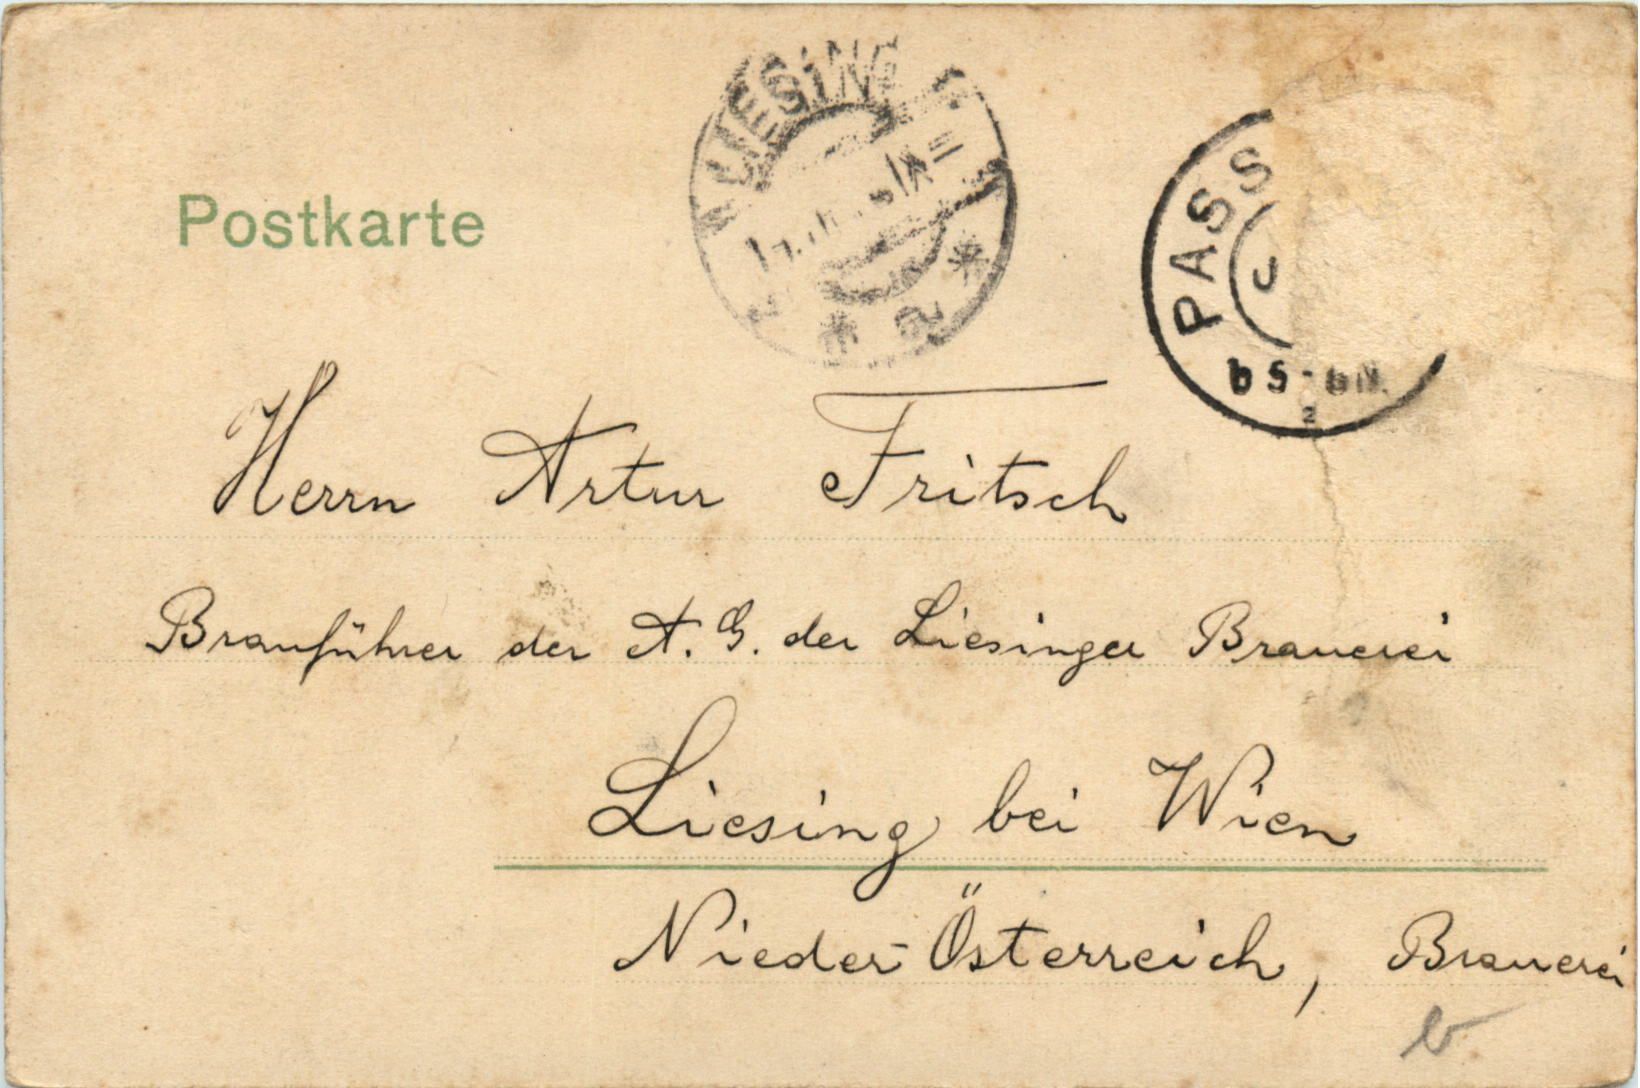 LIESING
PASS
Postkarte
Herrn Artur Fritsch
Brauführer der A. G. der Liesinger Brauerei
Liesing bei Wien
Nieder-Österreich, Brauerei
b